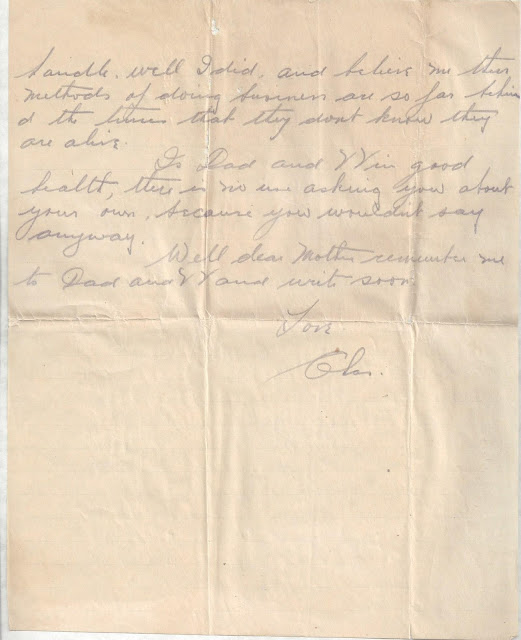 handle. well I did, and believe me their
methods of doing business are so far behin
d the times that they dont know they
are alive.
Is Dad and VV in good
health, there is no use asking you about
your own, because you wouldn't say
anyway.
Well dear Mother remember me
to Dad and VV and write soon.
Love